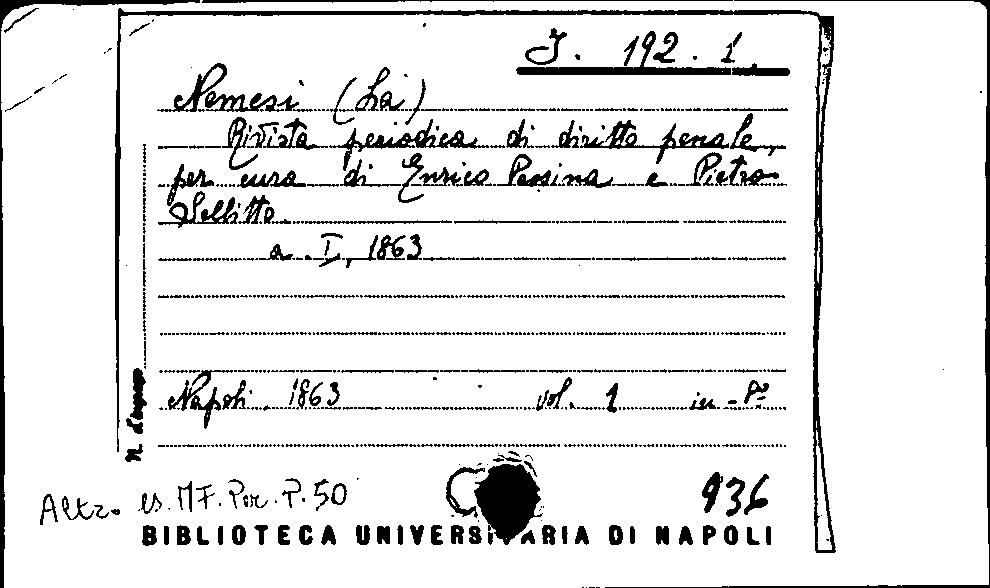 J. 192. 1.
Nemesi (La)
Rivista periodica di diritto penale,
per cura di Enrico Pessina e Pietro
Sellitto.
a. I, 1863
Napoli, 1863 vol. 1 in-8º
N. d'ingresso
Altro es. MF. Per. P. 50
936
BIBLIOTECA UNIVERSITARIA DI NAPOLI